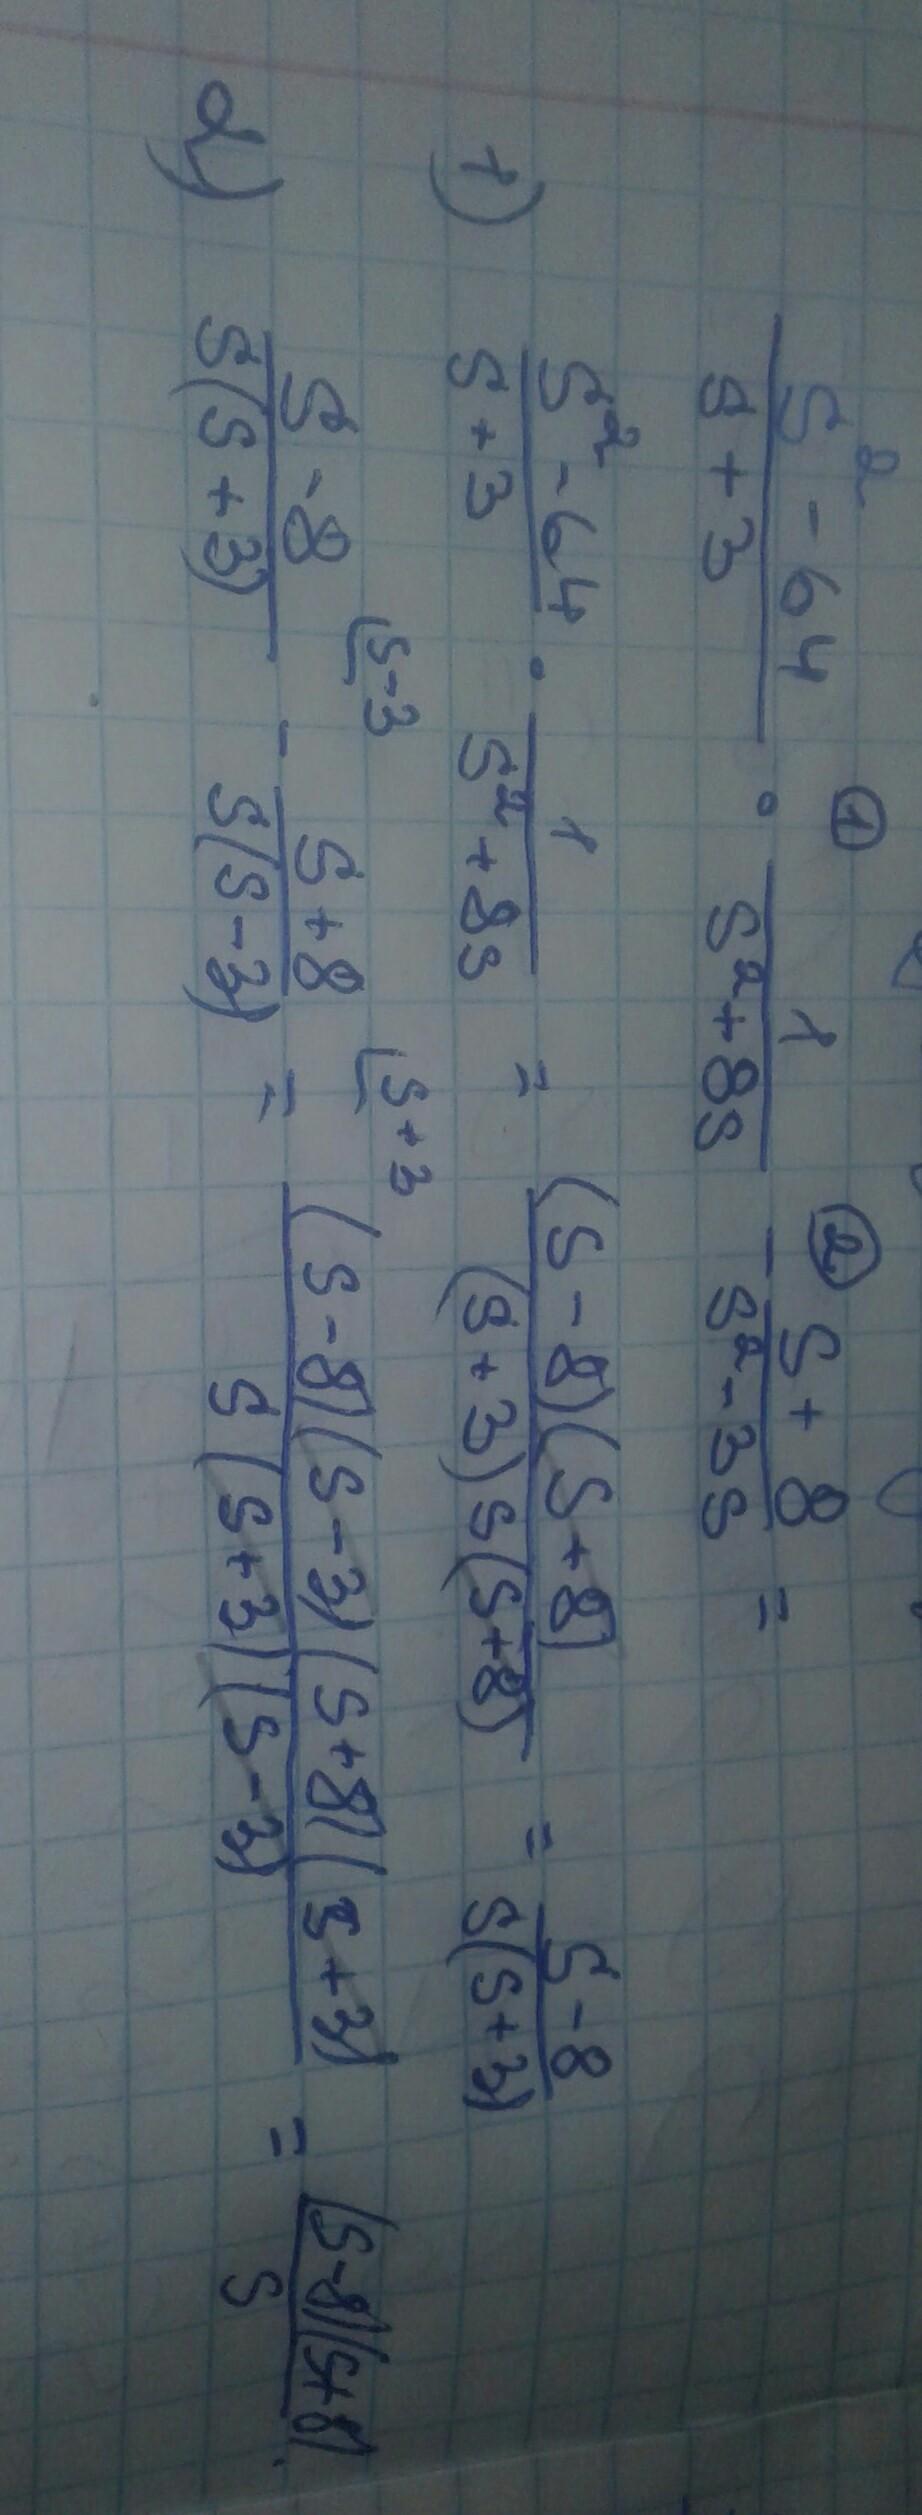 ① ②
(s² - 64)/(s + 3) · 1/(s² + 8s) - (s + 8)/(s² - 3s) =
1) (s² - 64)/(s + 3) · 1/(s² + 8s) = ((s - 8)(s + 8))/((s + 3)s(s + 8)) = (s - 8)/(s(s + 3))
(s - 3 (s + 3
2) (s - 8)/(s(s + 3)) - (s + 8)/(s(s - 3)) = ((s - 8)(s - 3)(s + 8)(s + 3))/(s(s + 3)(s - 3)) = ((s - 8)(s + 8))/s.